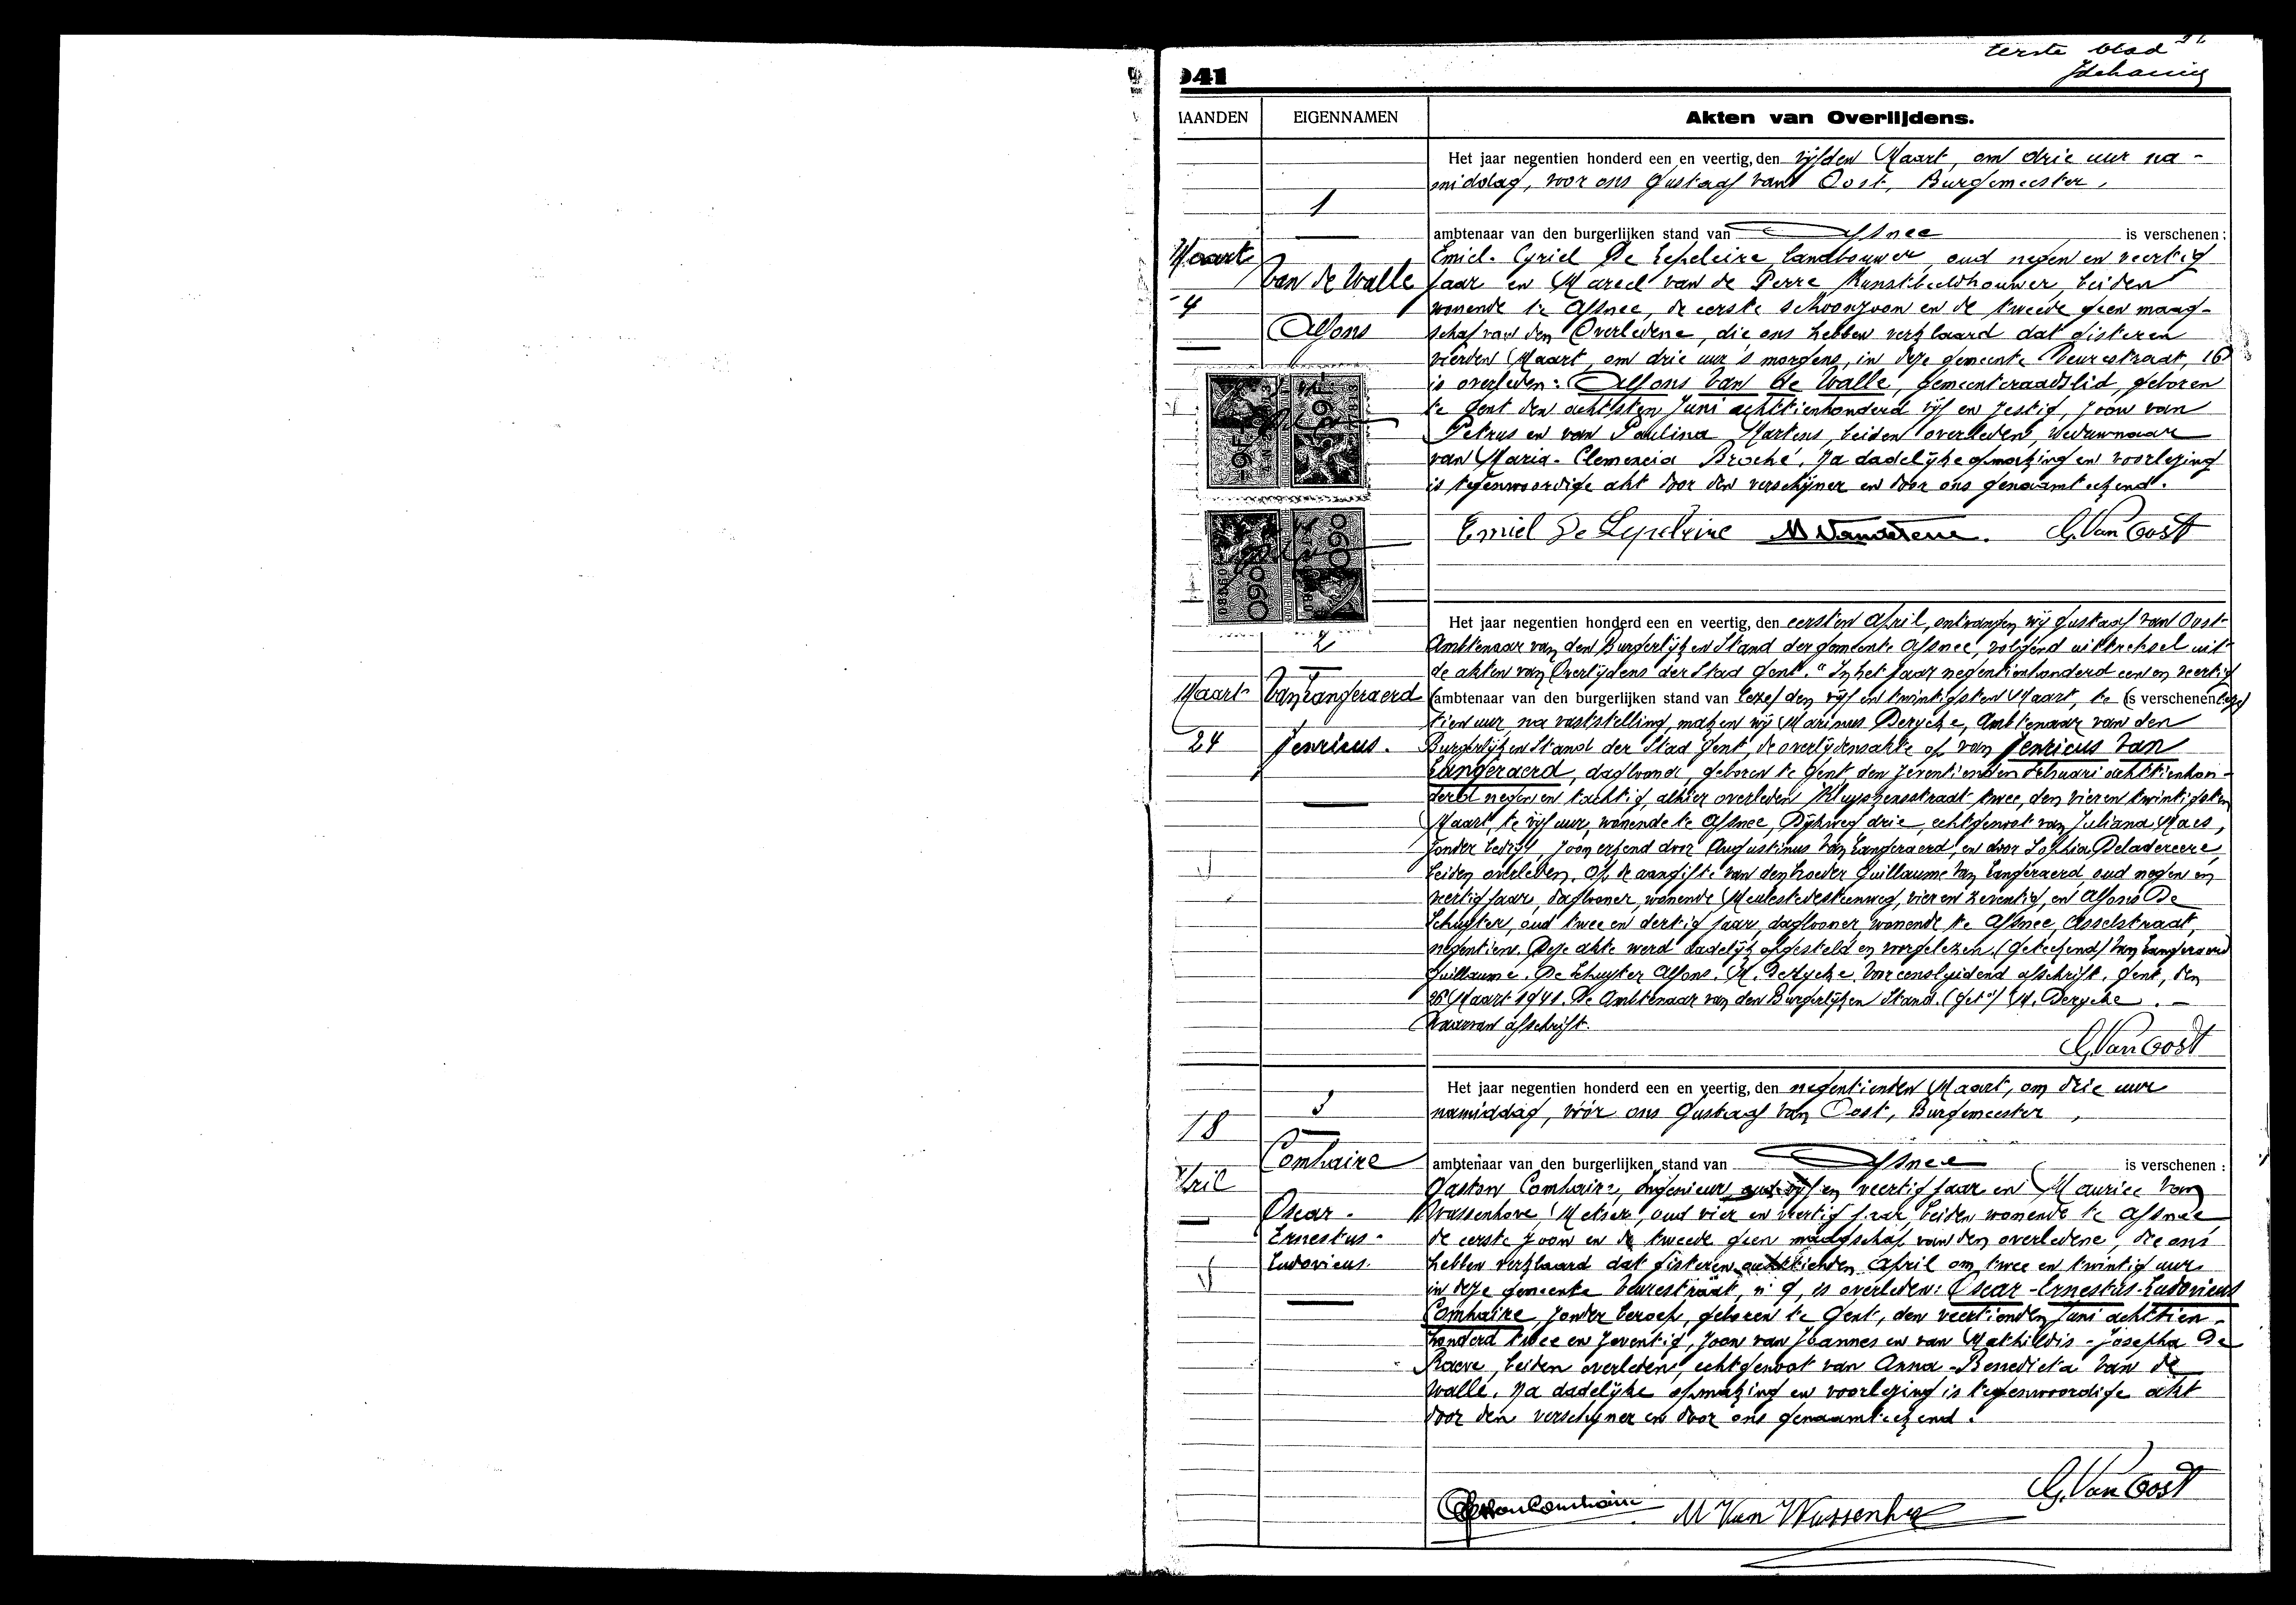 Eerste blad
941
MAANDEN
EIGENNAMEN
Akten van Overlijdens.
Maart
4
1
Van de Walle
Alfons
Het jaar negentien honderd een en veertig, den vijfden Maart, om drie uur na-
middag, voor ons Gustaaf van Oost, Burgemeester,
ambtenaar van den burgerlijken stand van Afsnee is verschenen:
Emiel-Cyriel De Lepeleire, landbouwer, oud negen en veertig
jaar en Marcel van de Perre Kunstbeeldhouwer, beiden
wonende te Afsnee, de eerste schoonzoon en de tweede geen maag-
schap van den Overledene, die ons hebben verklaard dat gisteren
vierden Maart, om drie uur 's morgens, in deze gemeente Veurestraat, 16
is overleden: Alfons Van de Walle, gemeenteraadslid, geboren
te Gent den achtsten Juni achttienhonderd vijf en zestig, zoon van
Petrus en van Paulina Martens, beiden overleden, weduwnaar
van Maria-Clemencia Broché. Na dadelijke opmaking en voorlezing
is tegenwoordige akt door den verschijner en door ons genaamteekend.
Emiel De Lepeleire M Vandeperre. G. Van Oost
2
Maart
24
Van Langeraerd
Henricus.
Het jaar negentien honderd een en veertig, den eersten April, ontvangen wij Gustaaf van Oost
Ambtenaar van den Burgerlijken Stand der gemeente Afsnee, volgend uittreksel uit
de akten van Overlijdens der Stad Gent. "In het jaar negentienhonderd een en veertig
(ambtenaar van den burgerlijken stand van den vijf en twintigsten Maart, te (is verschenen
tien uur, na vaststelling, maken wij Marinus Derycke, Ambtenaar van den
Burgerlijken Stand der Stad Gent, de overlijdensakte op van Henricus Van
Langeraerd, dagloner, geboren te Gent, den zeventienden Februari achttienhon-
derd negen en tachtig, alhier overleden Kluyskensstraat twee, den vier en twintigsten
Maart, te vijf uur, wonende te Afsnee, Dijkweg drie, echtgenoot van Juliana Maes,
zonder bedrijf, zoon erkend door Augustinus Van Langeraerd, en door Sophia
beiden overleden. Op de aangifte van den broeder Guillaume Van Langeraerd, oud negen en
veertig jaar, dagloner, wonende Meulestedesteenweg, vier en zeventig, en Alfons De
Schuyter, oud twee en dertig jaar, dagloner, wonende te Afsnee, Asselstraat,
negentien. Deze akte werd dadelijk opgesteld en voorgelezen. (Geteekend) Van Langeraerd
Guillaume. De Schuyter Alfons. M. Derycke. Voor eensluidend afschrift. Gent, den
26 Maart 1941. De Ambtenaar van den Burgerlijken Stand. (Get.) M. Derycke. -
Waarvan afschrift.
G. Van Oost
3
18
April
Comhaire
Oscar-
Ernestus-
Ludovicus.
Het jaar negentien honderd een en veertig, den negentienden Maart, om drie uur
namiddag, vóór ons Gustaaf Van Oost, Burgemeester,
ambtenaar van den burgerlijken stand van Afsnee is verschenen:
Gaston Comhaire, ingenieur, oud vijf en veertig jaar en Maurice Van
Wassenhove, Metser, oud vier en veertig jaar, beiden wonende te Afsnee
de eerste zoon en de tweede geen maagschap van den overledene, die ons
hebben verklaard dat gisteren achttienden April om twee en twintig uur
in deze gemeente Veurestraat, n° 9, is overleden: Oscar-Ernestus-Ludovicus
Comhaire, zonder beroep, geboren te Gent, den veertienden Juni achttien-
honderd twee en zeventig, zoon van Joannes en van Mathildis-Josepha De
Raeve, beiden overleden, echtgenoot van Anna-Benedicta Van de
Walle. Na dadelijke opmaking en voorlezing is tegenwoordige akt
door den verschijner en door ons genaamteekend.
Gaston Comhaire M Van Wassenhove G. Van Oost